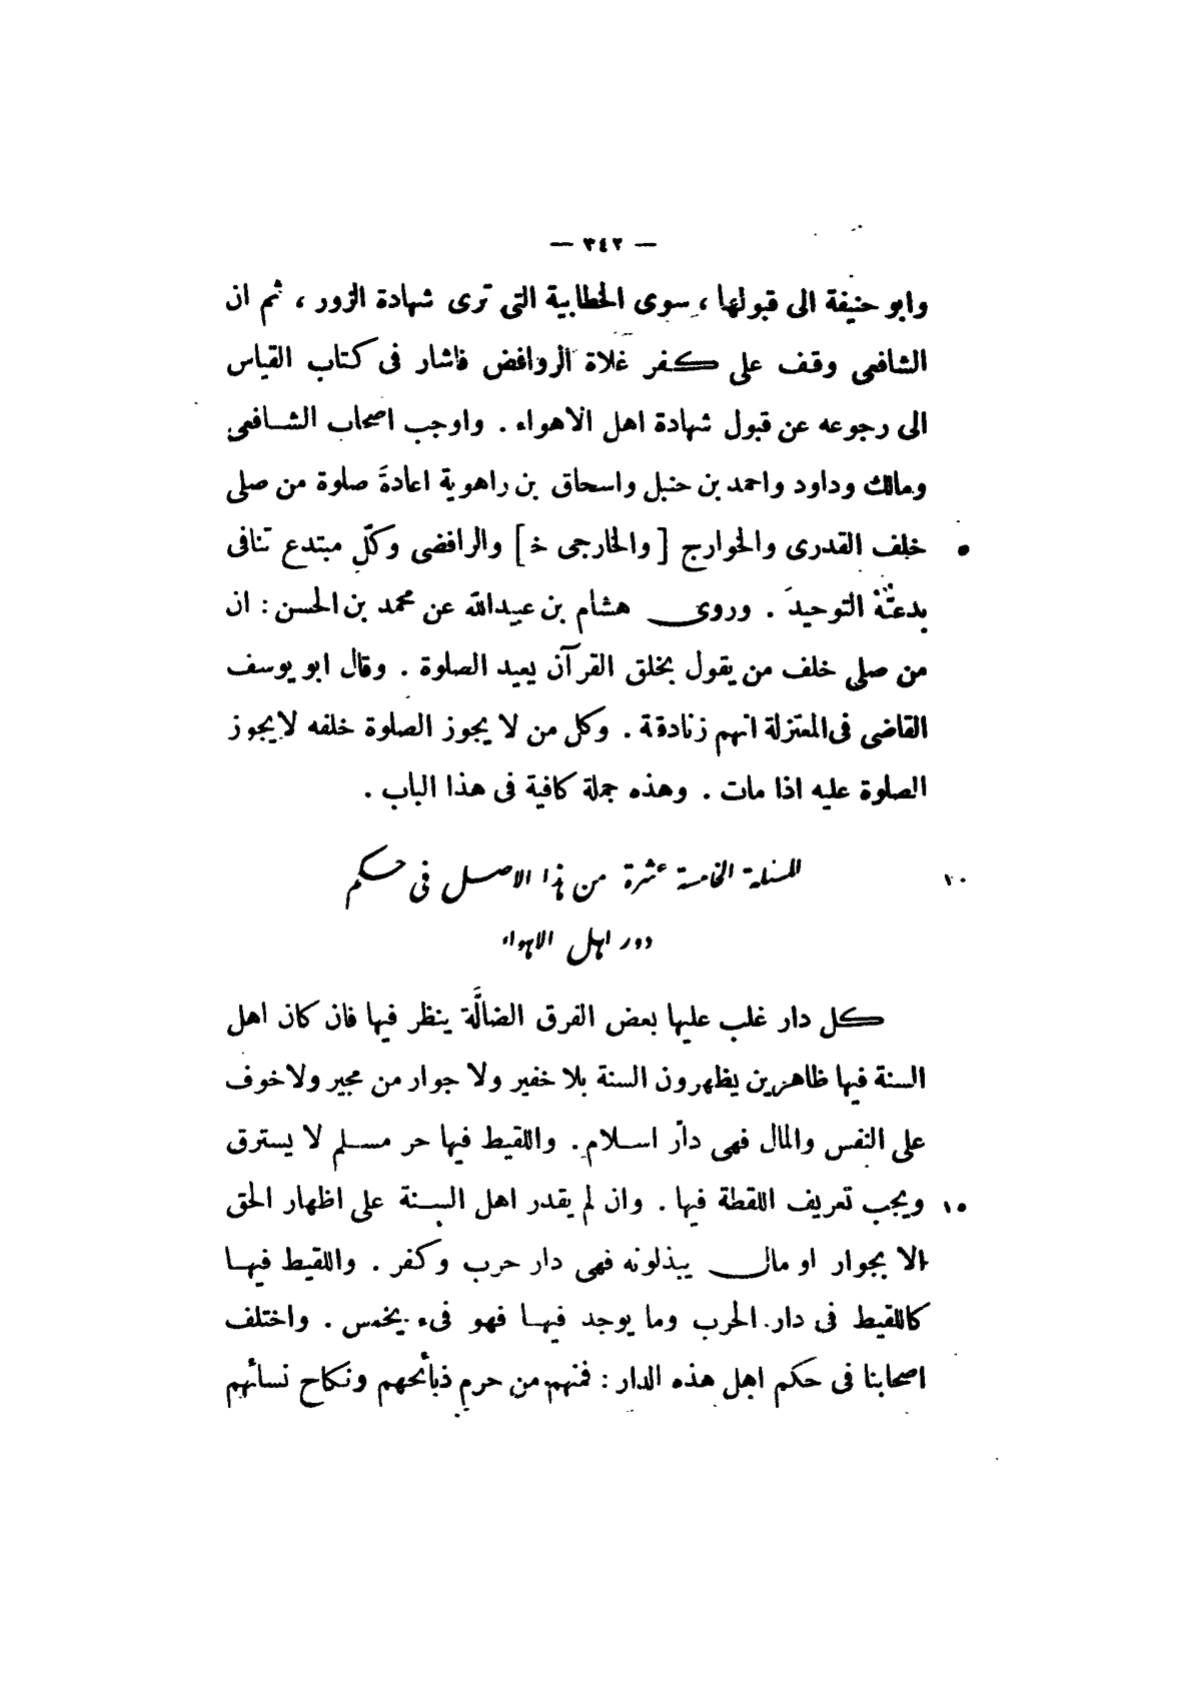 — ٣٤٢ —
وابو حنيفة الى قبولها ، سوى الخطابية التى ترى شهادة الزور ، ثم ان
الشافعى وقف على كفر غلاة الروافض فاشار فى كتاب القياس
الى رجوعه عن قبول شهادة اهل الاهواء . واوجب اصحاب الشافعى
ومالك وداود واحمد بن حنبل واسحاق بن راهوية اعادة صلوة من صلى
٥ خلف القدرى والخوارج [ والخارجى خ ] والرافضى وكلّ مبتدع تنافى
بدعتُهُ التوحيدَ . وروى هشام بن عبيدالله عن محمد بن الحسن : ان
من صلى خلف من يقول بخلق القرآن يعيد الصلوة . وقال ابو يوسف
القاضى فى المعتزلة انهم زنادقة . وكل من لا يجوز الصلوة خلفه لا يجوز
الصلوة عليه اذا مات . وهذه جملة كافية فى هذا الباب .
١٠ المسئلة الخامسة عشرة من هذا الاصل فى حكم
دور اهل الاهواء
كل دار غلب عليها بعض الفرق الضالَّة ينظر فيها فان كان اهل
السنة فيها ظاهرين يظهرون السنة بلا خفير ولا جوار من مجير ولا خوف
على النفس والمال فهى دار اسلام . واللقيط فيها حر مسلم لا يسترق
١٥ ويجب تعريف اللقطة فيها . وان لم يقدر اهل السنة على اظهار الحق
الا بجوار او مال يبذلونه فهى دار حرب وكفر . واللقيط فيها
كاللقيط فى دار الحرب وما يوجد فيها فهو فىء يخمس . واختلف
اصحابنا فى حكم اهل هذه الدار : فمنهم من حرم ذبائحهم ونكاح نسائهم